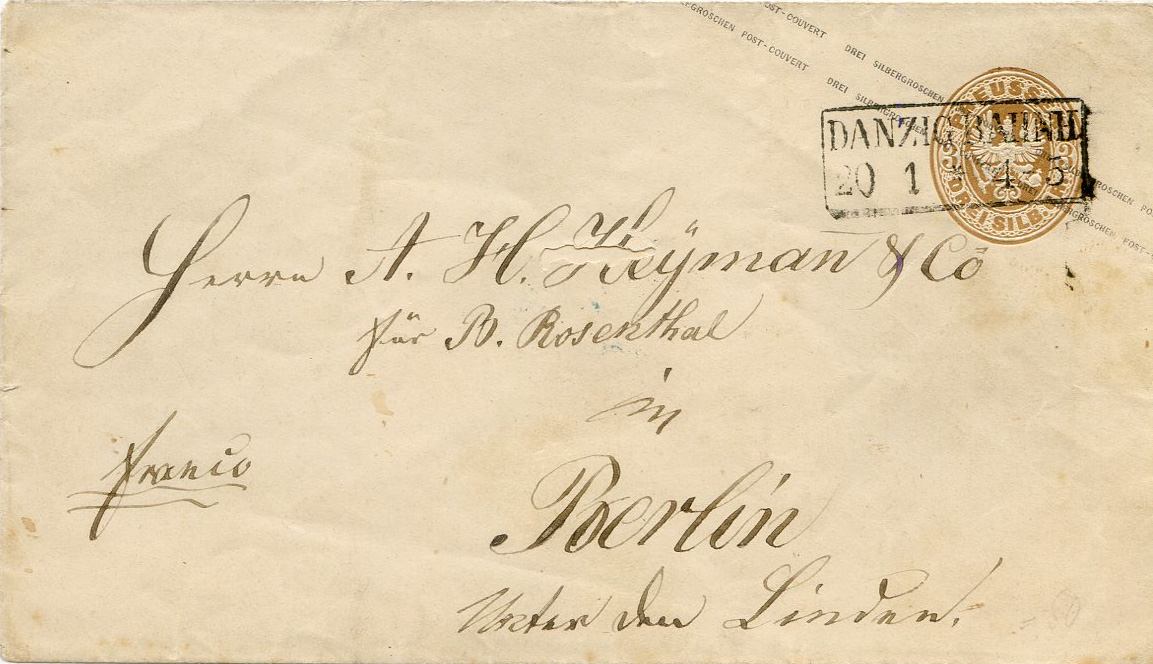 POST-COUVERT DREI SILBERGROSCHEN
POST-COUVERT DREI SILBERGROSCHEN
PREUSSEN
DREI SILB. GR.
DANZIG BAHNH.
20 1 * 4-5
Herrn A. H. Heÿman & Co
für B. Rosenthal
in
Franco
Berlin
Unter den Linden.